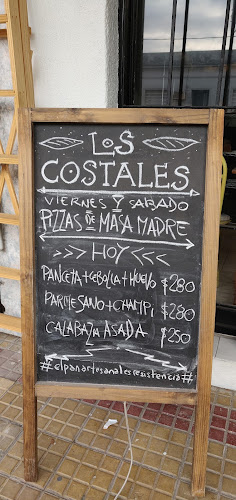 LOS
COSTALES
VIERNES Y SABADO
PIZZAS DE MASA MADRE
>>> HOY <<<
PANCETA+CEBOLLA+HUEVO $280
PARMESANO+CHAMPI $280
CALABAZA ASADA $250
#elpanartesanalesresistencia#